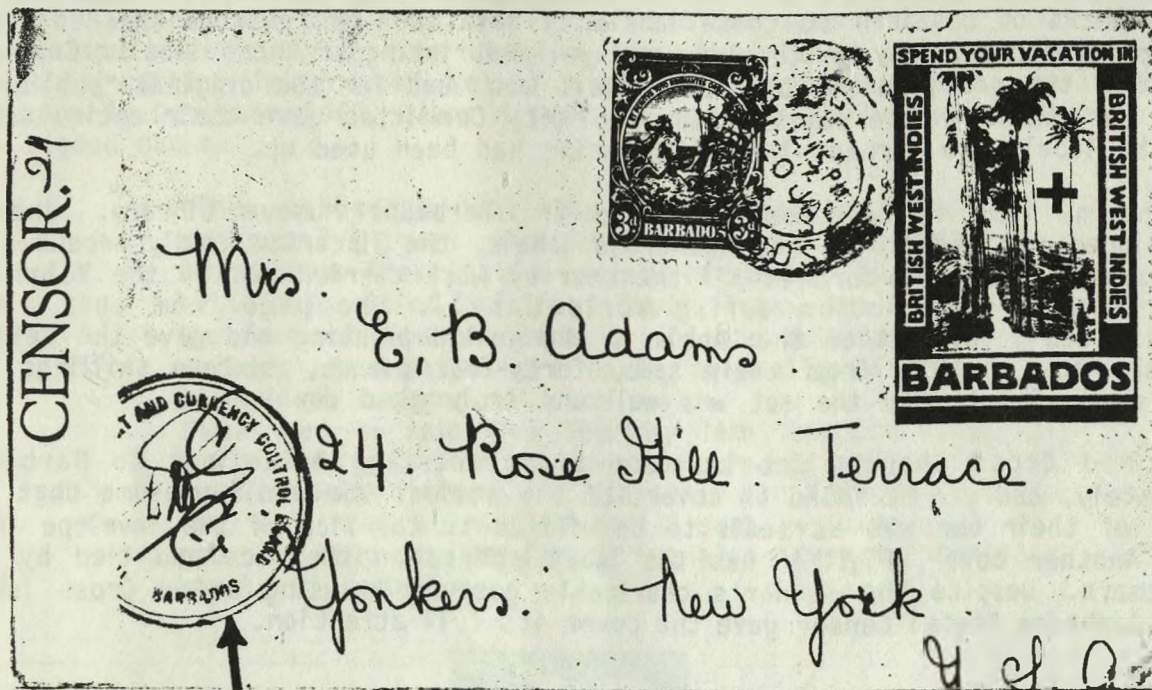 CENSOR.
3d 3d
BARBADOS
SPEND YOUR VACATION IN
BRITISH WEST INDIES
BRITISH WEST INDIES
BARBADOS
Mrs
E. B. Adams
24 - Rose Hill Terrace
Yonkers. New York
U. S. A.
AND CURRENCY CONTROL
BARBADOS